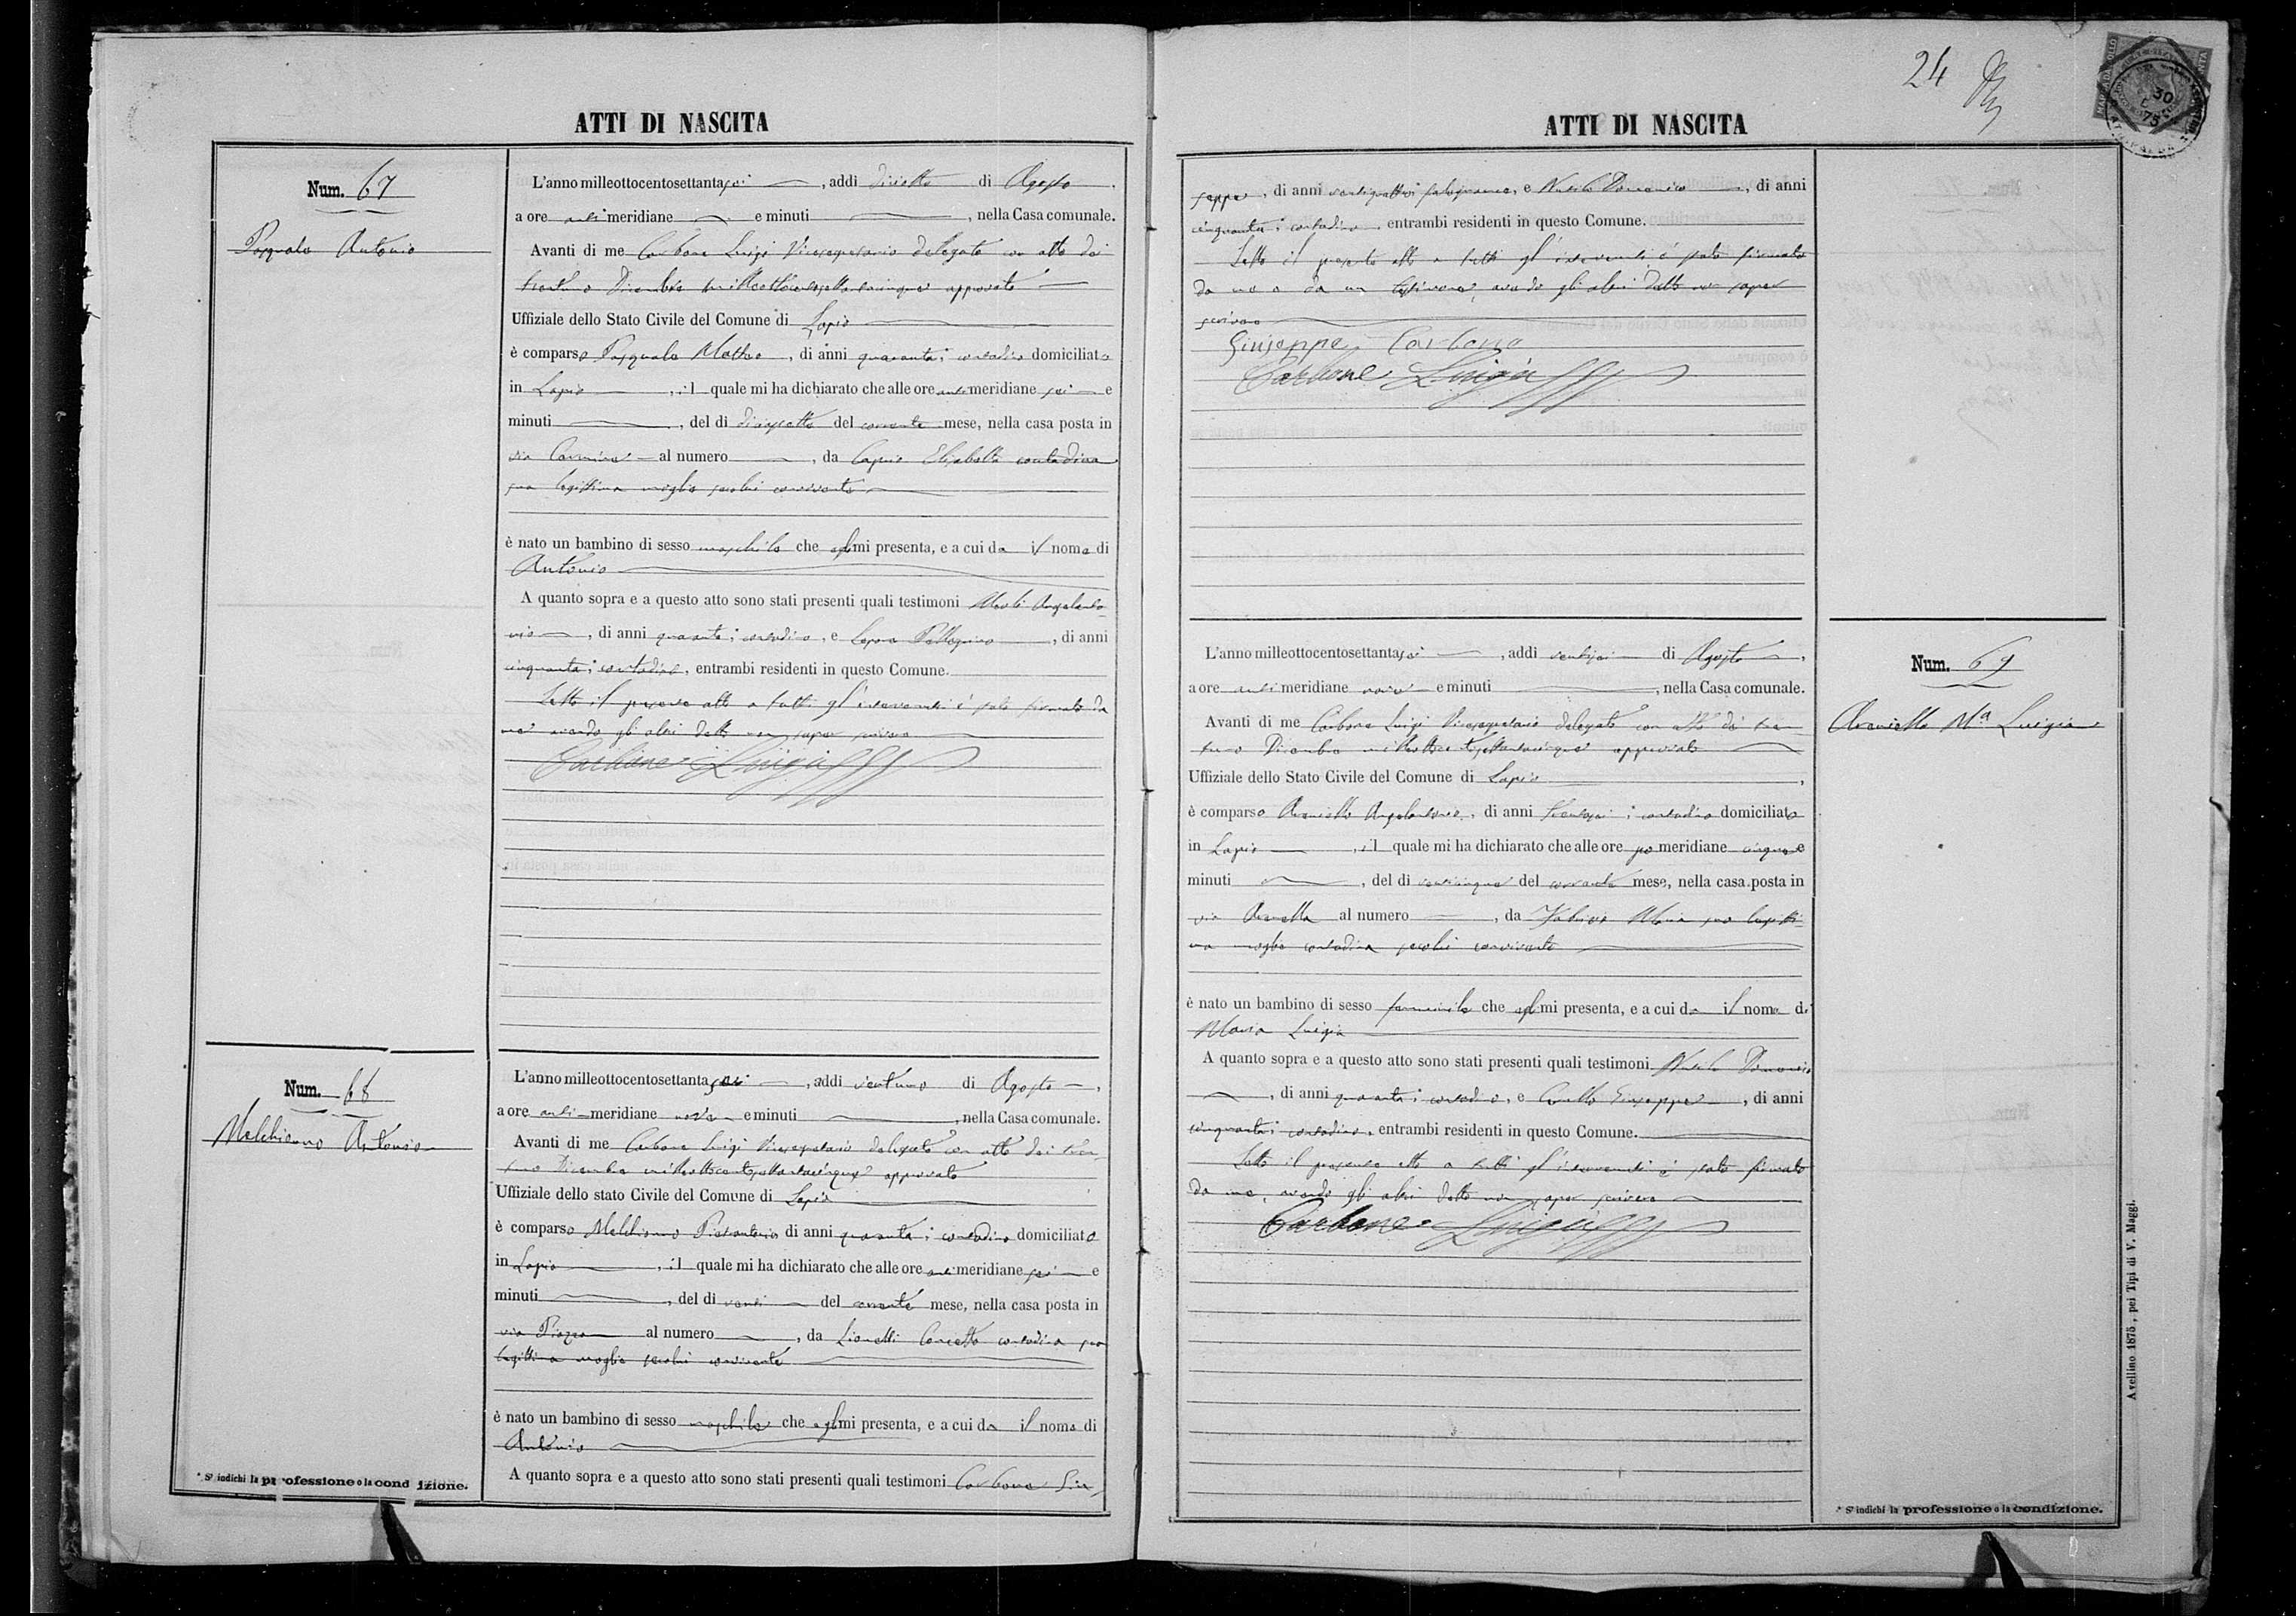 ATTI DI NASCITA
Num. 67
Pasquale Antonio
L'anno milleottocentosettantasei, addi diciotto di Agosto.
a ore anti meridiane e minuti, nella Casa comunale.
Avanti di me Carbone Luigi Vicesegretario delegato con atto dei
trentuno Dicembre milleottocentosettantacinque approvato
Uffiziale dello Stato Civile del Comune di Lapio
è comparso Pasquale Matteo, di anni quaranta; contadino domiciliato
in Lapio, il quale mi ha dichiarato che alle ore anti meridiane sei e
minuti, del di diciassette del corrente mese, nella casa posta in
via Carmine al numero, da Caprio Elisabetta contadina
sua legittima moglie seco lui convivente
è nato un bambino di sesso maschile che egli mi presenta, e a cui da il nome di
Antonio
A quanto sopra e a questo atto sono stati presenti quali testimoni Angelanto
nio, di anni quaranta; contadino, e Lepore Pellegrino, di anni
cinquanta; contadino, entrambi residenti in questo Comune.
Letto il presente atto a tutti gl'intervenuti è stato firmato da
me avendo gli altri detto non saper scrivere
Carbone Luigi
Num. 68
Melchionno Antonio
L'anno milleottocentosettantasei, addi ventuno di Agosto,
a ore anti-meridiane nove e minuti, nella Casa comunale.
Avanti di me Carbone Luigi Vicesegretario delegato con atto dei tren
tuno Dicembre milleottocentosettantacinque approvato
Uffiziale dello stato Civile del Comune di Lapio
è comparso Melchionno Pietrantonio di anni quaranta; contadino domiciliato
in Lapio, il quale mi ha dichiarato che alle ore anti meridiane sei e
minuti, del di venti del corrente mese, nella casa posta in
via Piazza al numero, da Lionetti Concetta contadina sua
legittima moglie seco lui convivente
è nato un bambino di sesso maschile che egli mi presenta, e a cui da il nome di
Antonio
A quanto sopra e a questo atto sono stati presenti quali testimoni Carbone Giu
* Si indichi la professione o la condizione.
24
ATTI DI NASCITA
seppe, di anni ventiquattro; falegname, e Domenico, di anni
cinquanta; contadino, entrambi residenti in questo Comune.
Letto il presente atto a tutti gl'intervenuti è stato firmato
da me e da un testimone, avendo gli altri detto non saper
scrivere
Giuseppe Carbone
Carbone Luigi
Num. 69
Araniello Mª Luigia
L'anno milleottocentosettantasei, addi ventisei di Agosto,
a ore anti meridiane nove e minuti, nella Casa comunale.
Avanti di me Carbone Luigi Vicesegretario delegato con atto dei tren
tuno Dicembre milleottocentosettantacinque approvato
Uffiziale dello Stato Civile del Comune di Lapio,
è comparso Araniello Angelantonio, di anni trentasei; contadino domiciliato
in Lapio, il quale mi ha dichiarato che alle ore po meridiane cinque e
minuti, del di venticinque del corrente mese, nella casa posta in
via al numero, da Fabrizio Maria sua legitti
ma moglie contadina seco lui convivente
è nato un bambino di sesso femminile che egli mi presenta, e a cui da il nome di
Maria Luigia
A quanto sopra e a questo atto sono stati presenti quali testimoni Domenico
, di anni quaranta; contadino, e Giuseppe, di anni
cinquanta; contadino, entrambi residenti in questo Comune.
Letto il presente atto a tutti gl'intervenuti è stato firmato
da me, avendo gli altri detto non saper scrivere
Carbone Luigi
* Si indichi la professione o la condizione.
Avellino 1875, pei Tipi di V. Maggi.